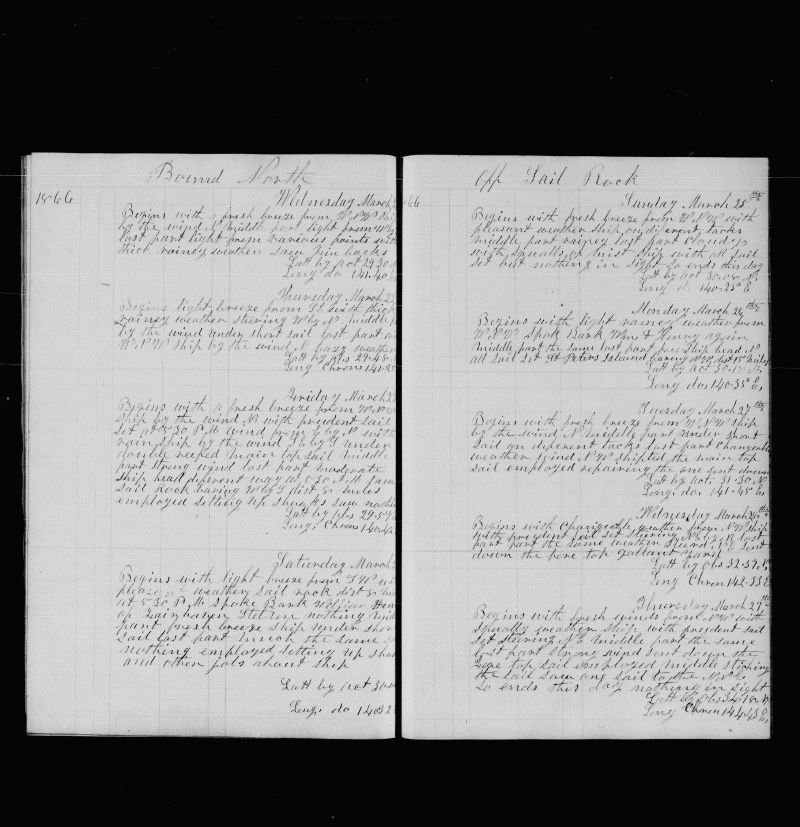 Bound North
1866
Wednesday March
Begins with a fresh breeze from W.N.W
by the wind N middle part light from
last part light from various points with
thick rainey weather saw fin backs
Latt by act 29.30
Long do 141.40 E
Thursday March
Begins light breeze from with thick
rainey weather steering W by N middle
by the wind under short sail last part
W.N.W ship by the wind N hazy weather
Latt by obs 29.45
Long Chron 141.20
Friday March
Begins with a fresh breeze from W.N.W
ship by the wind N with president sail
set at 5.30 P.M. wind from by N with
rain ship by the wind by under
double reefed main top sail middle
part strong wind last part
Ship head different way at 5.30 A.M. saw
Sail Rock baring W by dist 8 miles
employed setting up shrouds saw nothing
Latt by obs 29.5
Long. Chron 140.42
Saturday March
Begins with light breeze from
weather sail rock dist
at 5.30 P.M. Spoke Bark William Hen
of Fairhaven nothing mid
part fresh breeze ship under short
sail last part much the same
nothing employed setting up
and other jobs about ship
Latt by act 30
Long. do 140.2
Off Sail Rock
66
Sunday March 25th
Begins with fresh breeze from W.N.W with
pleasant weather ship on different tacks
middle part rainey last part cloudy
with squalls of mist ship with all sail
set but nothing in sight So ends this day
Latt by act 30.08 N.
Long do 140.25 E
Monday March 26th
Begins with light rainey weather from
W.N.W Spok Bark Wm & Henry again
middle part the same last part ship head N
all sail set St Peters Island baring N.W. dist 15 miles
Latt by act 30.15 N.
Long do. 140.35 E,
Tuesday March 27th
Begins with fresh breeze from W.N.W ship
by the wind N middle part under short
sail on diferent tacks last part changeable
weather wind N.W shipted the main top
sail employed repairing the one sent down
Latt by act. 31.30 N.
Long. do. 141.45 E,
Wednesday March 28th
Begins with changeable weather from N.W ship
with president sail set steering N.E by N last
part part the same weather sent
down the fore top gallant yard
Latt by obs 32.57 N
Long Chron 142.33 E
Thursday March 29th
Begins with fresh winds from N.W with
squally weather ship with president sail
set steering N.E middle part the same
last part strong wind sent down the
fore top sail employed middle stiching
the sail saw one sail to the N
So ends this day nothing in sight
Latt by obs 34.18 N
Long Chron 144.45 E,